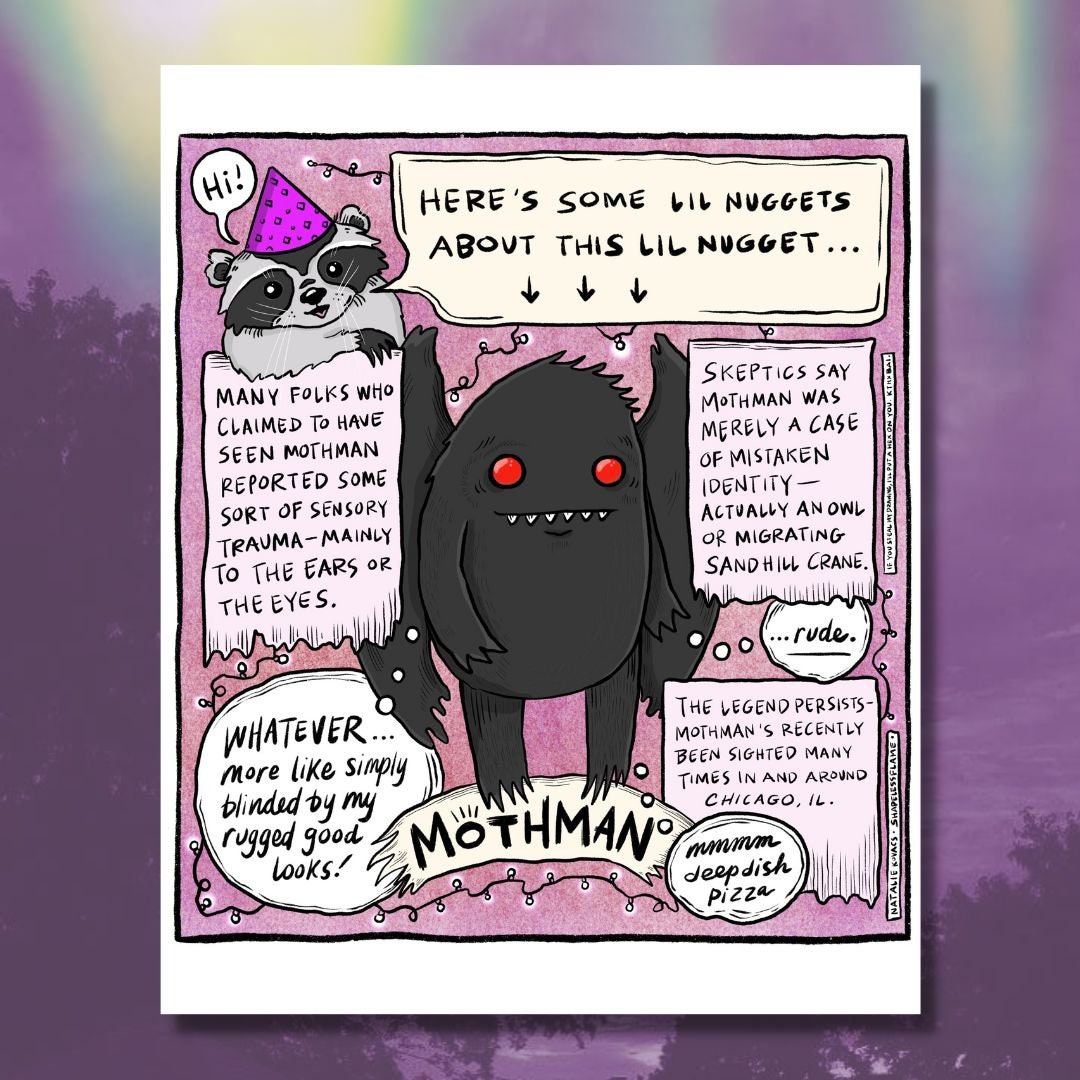 Hi!
HERE'S SOME LIL NUGGETS
ABOUT THIS LIL NUGGET...
MANY FOLKS WHO
CLAIMED TO HAVE
SEEN MOTHMAN
REPORTED SOME
SORT OF SENSORY
TRAUMA—MAINLY
TO THE EARS OR
THE EYES.
WHATEVER...
more like simply
blinded by my
rugged good
looks!
MOTHMAN
SKEPTICS SAY
MOTHMAN WAS
MERELY A CASE
OF MISTAKEN
IDENTITY—
ACTUALLY AN OWL
OR MIGRATING
SANDHILL CRANE.
...rude.
THE LEGEND PERSISTS-
MOTHMAN'S RECENTLY
BEEN SIGHTED MANY
TIMES IN AND AROUND
CHICAGO, IL.
mmmm
deep dish
pizza
IF YOU STEAL MY DRAWING, I'LL PUT A HEX ON YOU. KTHXBAI.
NATALIE KOVACS • SHAPELESSFLAME •